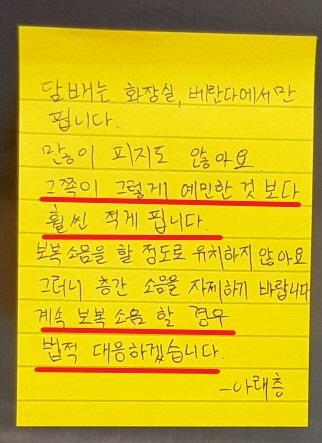 담배는 화장실, 베란다에서만
핍니다.
많이 피지도 않아요
그쪽이 그렇게 예민한 것 보다
훨씬 적게 핍니다.
보복소음을 할 정도로 유치하지 않아요
그러니 층간 소음을 자제하기 바랍니다
계속 보복 소음 할 경우
법적 대응하겠습니다.
-아래층